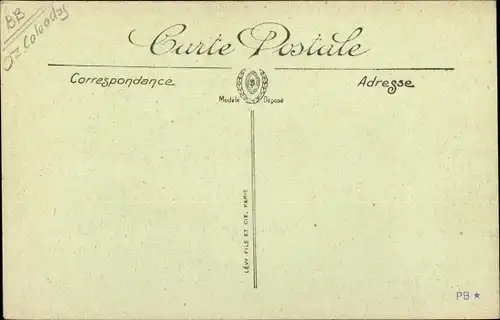 BB
Calvados
Carte Postale
Correspondance
Adresse
Modèle Déposé
LÉVY FILS ET CIE, PARIS
PB *